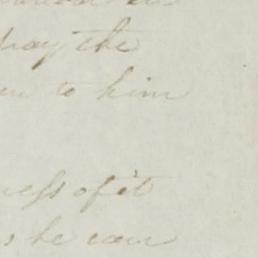 pay the
to him
ness of it
he can